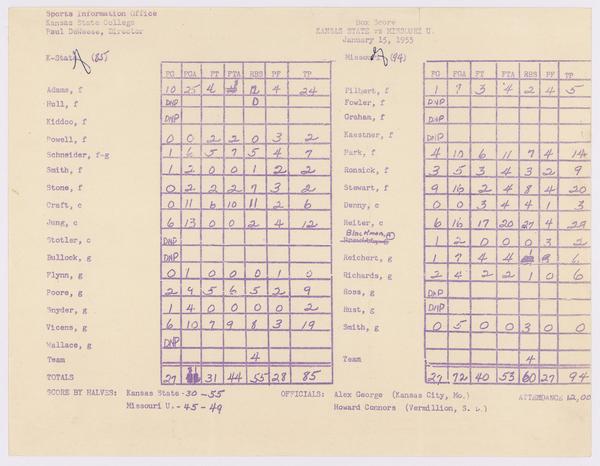 Sports Information Office
Kansas State College
Paul DeWeese, Director
Box Score
KANSAS STATE vs MISSOURI U.
January 15, 1955
K-State (85)
FG FGA FT FTA RBS PF TP
Adams, f 10 25 4 12 4 24
Hull, f DNP D
Kiddoo, f DNP
Powell, f 0 0 2 2 0 3 2
Schneider, f-g 1 6 5 7 5 4 7
Smith, f 1 2 0 0 1 2 2
Stone, f 0 2 2 2 7 3 2
Craft, c 0 11 6 10 11 2 6
Jung, c 6 13 0 0 2 4 12
Stotler, c DNP
Bullock, g DNP
Flynn, g 0 1 0 0 0 1 0
Poore, g 2 9 5 6 5 2 9
Snyder, g 1 4 0 0 0 0 2
Vicens, g 6 10 7 9 8 3 19
Wallace, g DNP
Team 4
TOTALS 27 31 44 55 28 85
Missouri (94)
FG FGA FT FTA RBS PF TP
Filbert, f 1 7 3 4 2 4 5
Fowler, f DNP
Graham, f
Kaestner, f DNP
Park, f 4 10 6 11 7 4 14
Ronsick, f 3 5 3 4 3 2 9
Stewart, f 9 16 2 4 8 4 20
Denny, c 0 0 3 4 4 1 3
Reiter, c 6 16 17 20 27 4 29
Blackman, 1 2 0 0 0 3 2
Reichert, g 1 7 4 4 6
Richards, g 2 4 2 2 1 0 6
Ross, g DNP
Rust, g DNP
Smith, g 0 5 0 0 3 0 0
Team 4
27 72 40 53 60 27 94
SCORE BY HALVES: Kansas State - 30 - 55
Missouri U. - 45 - 49
OFFICIALS: Alex George (Kansas City, Mo.)
Howard Connors (Vermillion, S. D.)
ATTENDANCE 12,00